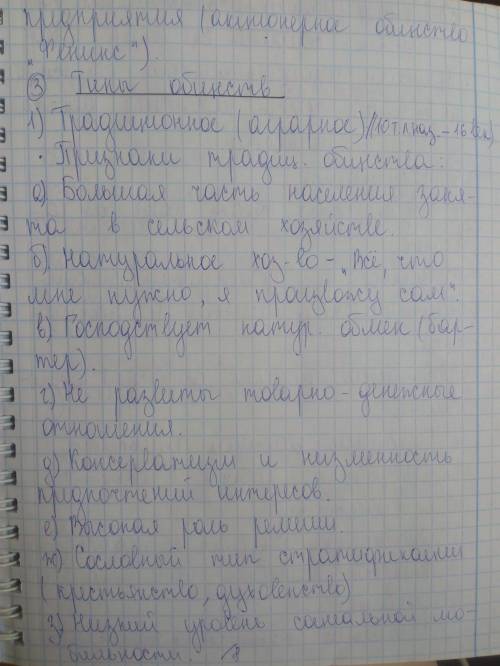 предприятия (акционерное общество
"Феникс").
③ Типы обществ
1) Традиционное (аграрное)//10т.л наз – 16 в.)
· Признаки традиц. общества:
а) Большая часть населения заня-
та в сельском хозяйстве.
б) Натуральное хоз-во – „Всё, что
мне нужно, я произвожу сам".
в) Господствует натур. обмен (бар-
тер).
г) Не развиты товарно-денежные
отношения.
д) Консерватизм и низменность
предпочтений интересов.
е) Высокая роль религии.
ж) Сословный тип стратификации
(крестьянство, духовенство)
з) Низкий уровень социальной мо-
бильности.